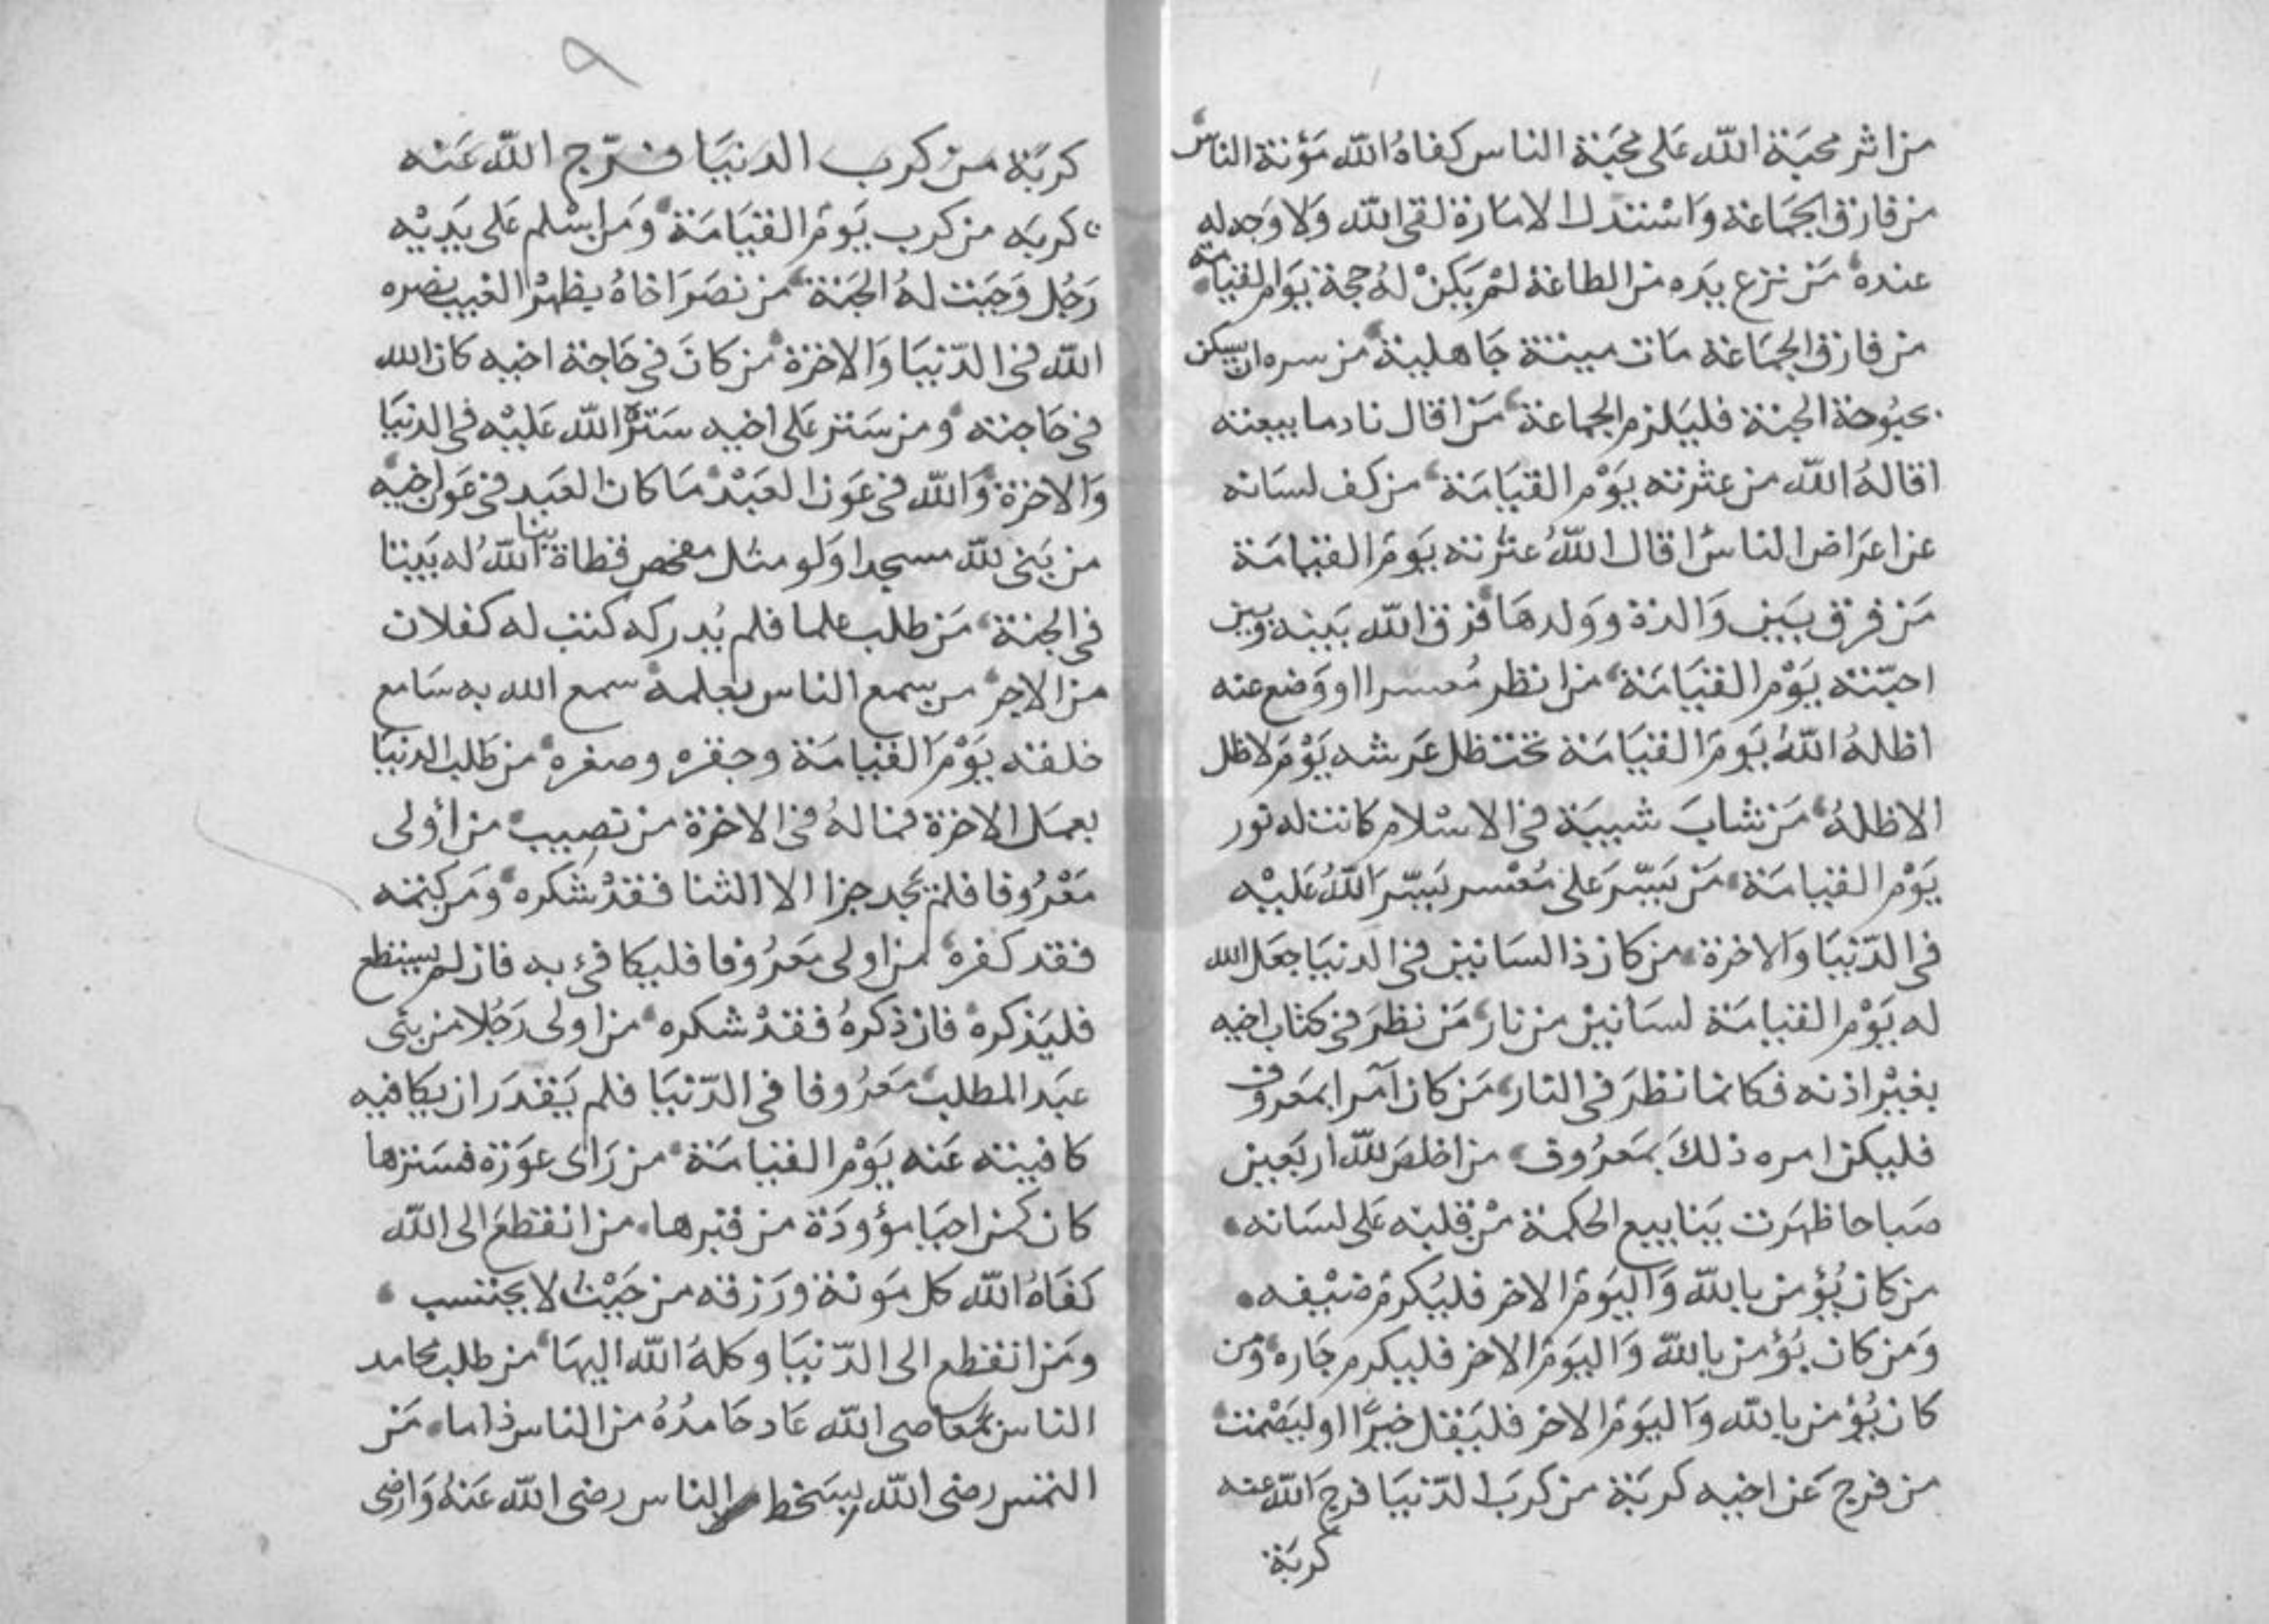 من اثر محبة الله على محبة الناس كفاه الله مؤنة الناس
من فارق الجماعة واستذل الامارة لقى الله ولا وجه له
عنده من نزع يده من الطاعة لم يكن له حجة يوم القيامة
من فارق الجماعة مات ميتة جاهلية من سره ان يسكن
بحبوحة الجنة فليلزم الجماعة من اقال نادما بيعته
اقاله الله من عثرته يوم القيامة من كف لسانه
عن اعراض الناس اقال الله عثرته يوم القيامة
من فرق بين والدة وولدها فرق الله بينه وبين
احبته يوم القيامة من انظر معسرا او وضع عنه
اظله الله يوم القيامة تحت ظل عرشه يوم لا ظل
الا ظله من شاب شيبة في الاسلام كانت له نور
يوم القيامة من يسر على معسر يسر الله عليه
في الدنيا والاخرة من كان ذا لسانين في الدنيا جعل الله
له يوم القيامة لسانين من نار من نظر في كتاب اخيه
بغير اذنه فكانما نظر في النار من كان آمرا بمعروف
فليكن امره ذلك بمعروف من اخلص لله اربعين
صباحا ظهرت ينابيع الحكمة من قلبه على لسانه
من كان يؤمن بالله واليوم الاخر فليكرم ضيفه
ومن كان يؤمن بالله واليوم الاخر فليكرم جاره ومن
كان يؤمن بالله واليوم الاخر فليقل خيرا او ليصمت
من فرج عن اخيه كربة من كرب الدنيا فرج الله عنه
كربة
٩
كربة من كرب الدنيا فرج الله عنه
كربه من كرب يوم القيامة ومن اسلم على يديه
رجل وجبت له الجنة من نصر اخاه بظهر الغيب نصره
الله في الدنيا والاخرة من كان في حاجة اخيه كان الله
في حاجته ومن ستر على اخيه ستر الله عليه في الدنيا
والاخرة والله في عون العبد ما كان العبد في عون اخيه
من بنى لله مسجدا ولو مثل مفحص قطاة بنا الله له بيتا
في الجنة من طلب علما فلم يدركه كتب له كفلان
من الاجر من سمع الناس بعلمه سمع الله به سامع
خلقه يوم القيامة وحقره وصغره من طلب الدنيا
بعمل الاخرة فما له في الاخرة من نصيب من أولى
معروفا فلم يجد جزا الا الثنا فقد شكره ومن كتمه
فقد كفره من اولى معروفا فليكافئ به فان لم يستطع
فليذكره فان ذكره فقد شكره من اولى رجلا من بنى
عبد المطلب معروفا في الدنيا فلم يقدر ان يكافيه
كافيته عنه يوم القيامة من راى عورة فسترها
كان كمن احيا مؤودة من قبرها من انقطع الى الله
كفاه الله كل مونة ورزقه من حيث لا يحتسب
ومن انقطع الى الدنيا وكله الله اليها من طلب محامد
الناس بمعاصى الله عاد حامده من الناس ذاما من
التمس رضى الله بسخط الناس رضى الله عنه وارضى